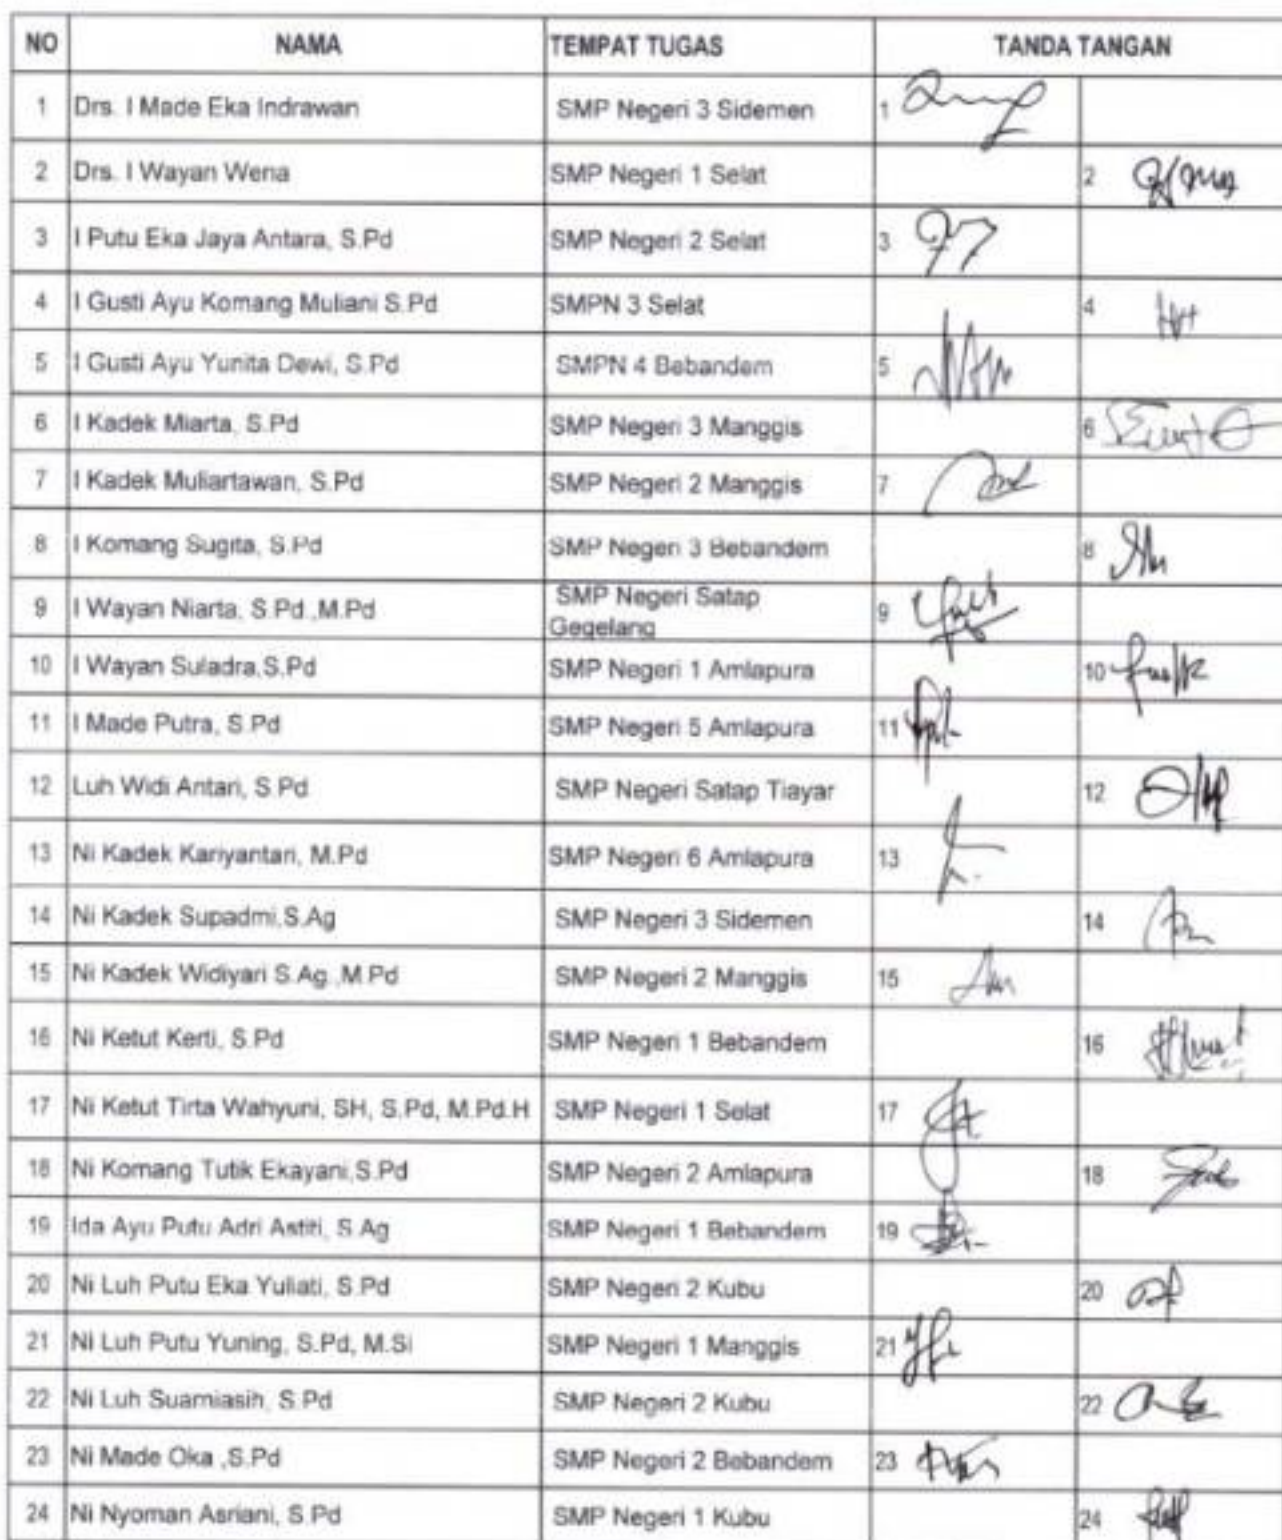 NO NAMA TEMPAT TUGAS TANDA TANGAN
1 Drs. I Made Eka Indrawan SMP Negeri 3 Sidemen 1
2 Drs. I Wayan Wena SMP Negeri 1 Selat 2
3 I Putu Eka Jaya Antara, S.Pd SMP Negeri 2 Selat 3
4 I Gusti Ayu Komang Muliani S.Pd SMPN 3 Selat 4
5 I Gusti Ayu Yunita Dewi, S.Pd SMPN 4 Bebandem 5
6 I Kadek Miarta, S.Pd SMP Negeri 3 Manggis 6
7 I Kadek Muliartawan, S.Pd SMP Negeri 2 Manggis 7
8 I Komang Sugita, S.Pd SMP Negeri 3 Bebandem 8
9 I Wayan Niarta, S.Pd.,M.Pd SMP Negeri Satap
Gegelang 9
10 I Wayan Suladra,S.Pd SMP Negeri 1 Amlapura 10
11 I Made Putra, S.Pd SMP Negeri 5 Amlapura 11
12 Luh Widi Antari, S.Pd SMP Negeri Satap Tiayar 12
13 Ni Kadek Kariyantari, M.Pd SMP Negeri 6 Amlapura 13
14 Ni Kadek Supadmi,S.Ag SMP Negeri 3 Sidemen 14
15 Ni Kadek Widiyari S.Ag.,M.Pd SMP Negeri 2 Manggis 15
16 Ni Ketut Kerti, S.Pd SMP Negeri 1 Bebandem 16
17 Ni Ketut Tirta Wahyuni, SH, S.Pd, M.Pd.H SMP Negeri 1 Selat 17
18 Ni Komang Tutik Ekayani,S.Pd SMP Negeri 2 Amlapura 18
19 Ida Ayu Putu Adri Astiti, S.Ag SMP Negeri 1 Bebandem 19
20 Ni Luh Putu Eka Yuliati, S.Pd SMP Negeri 2 Kubu 20
21 Ni Luh Putu Yuning, S.Pd, M.Si SMP Negeri 1 Manggis 21
22 Ni Luh Suarniasih, S.Pd SMP Negeri 2 Kubu 22
23 Ni Made Oka ,S.Pd SMP Negeri 2 Bebandem 23
24 Ni Nyoman Asriani, S.Pd SMP Negeri 1 Kubu 24